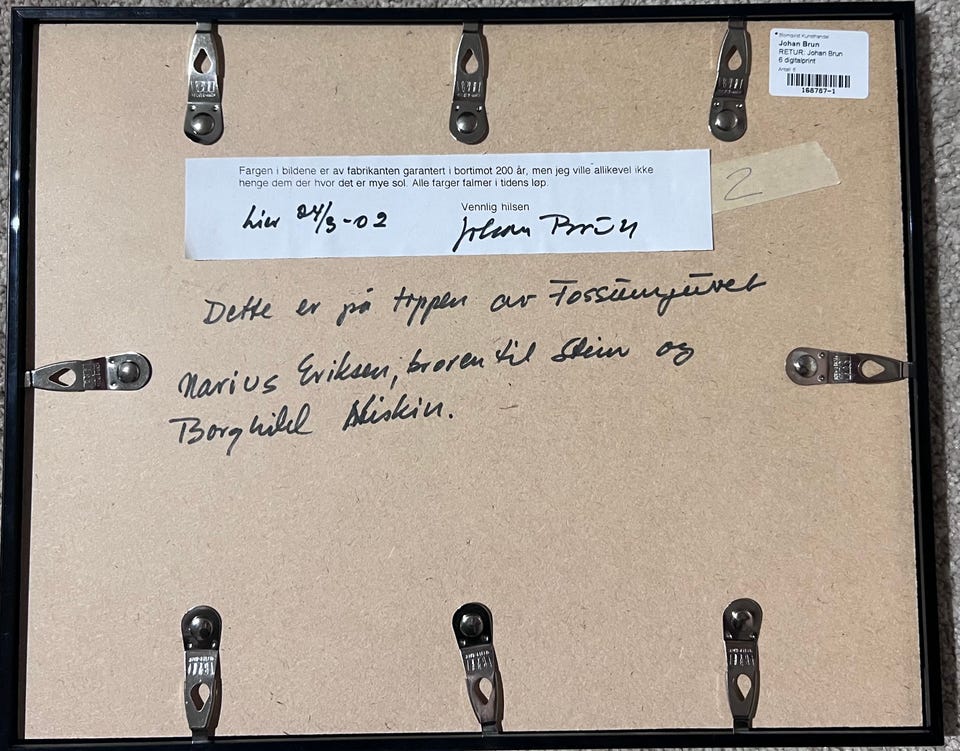 Blomqvist Kunsthandel
Johan Brun
RETUR: Johan Brun
6 digitalprint
Antall: 6
168767-1
Fargen i bildene er av fabrikanten garantert i bortimot 200 år, men jeg ville allikevel ikke
henge dem der hvor det er mye sol. Alle farger falmer i tidens løp.
Vennlig hilsen
Lier 24/3-02 Johan Brun
2
Dette er på toppen av Fossumjuvet
Marius Eriksen, broren til Stein og
Borghild Niskin.